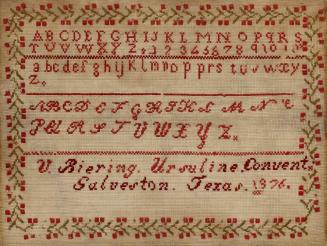 ABCDEFGHIJKLMNOPQRS
TUVWXYZ, 1 2 3 4 5 6 7 8 9 10 11
abcdefghijklmnopprstuvwxy
z.
ABCDEFGHIKLMN
PQRSTUWXYZ.
V. Biering. Ursuline. Convent
Galveston. Texas. 1876.